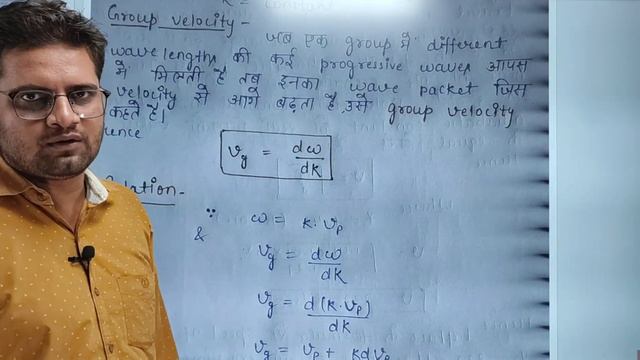 Group velocity -
जब एक group में different
wavelengths की कई progressive waves आपस
में मिलती हैं तब इनका wave packet जिस
velocity से आगे बढ़ता है उसे group velocity
कहते हैं।
v_g = dω/dk
∵ ω = k·v_p
& v_g = dω/dk
v_g = d(k·v_p)/dk
v_g = v_p + kdv_p